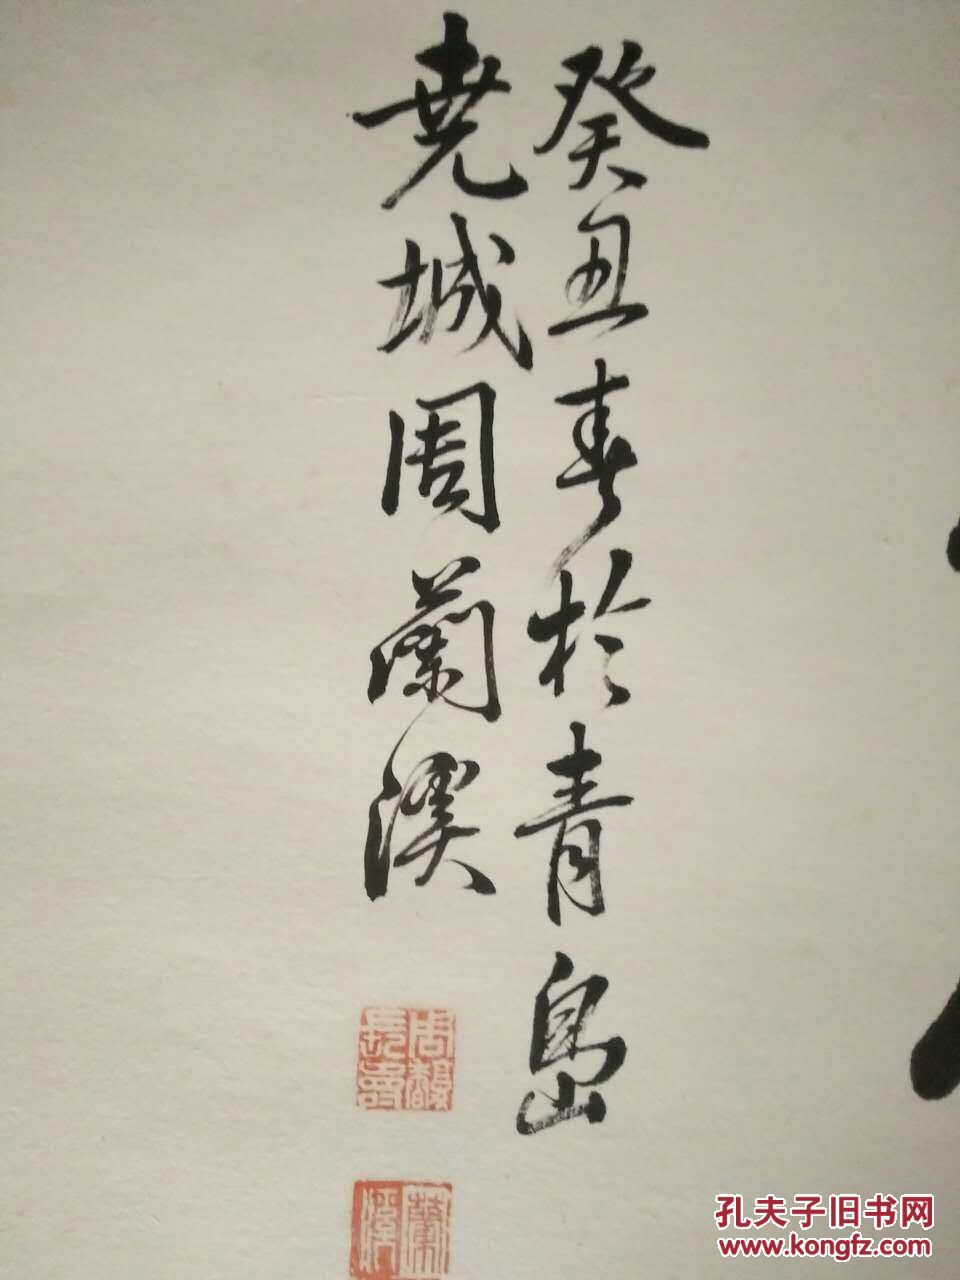 癸丑春於青島
堯城周蘭溪
蘭溪
孔夫子旧书网
www.kongfz.com